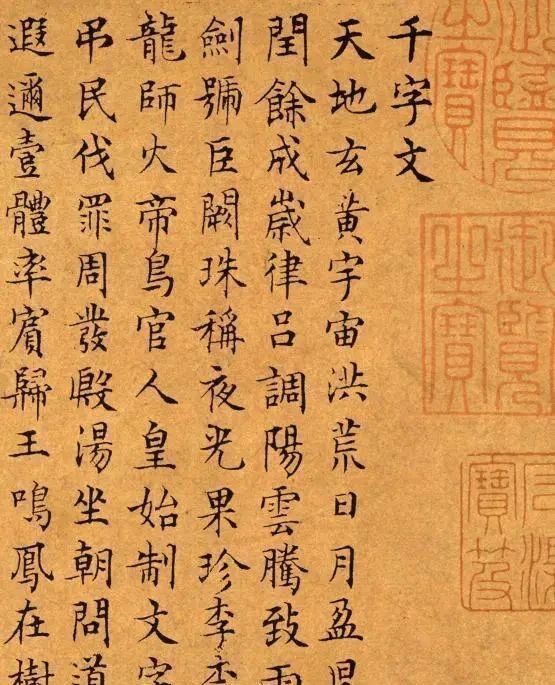 千字文
天地玄黄宇宙洪荒日月盈昃
閏餘成歲律吕調陽雲騰致雨
劍號巨闕珠稱夜光果珍李柰
龍師火帝鳥官人皇始制文字
吊民伐罪周發殷湯坐朝問道
遐邇壹體率賓歸王鳴鳳在樹
御覽之寶
石渠寶笈